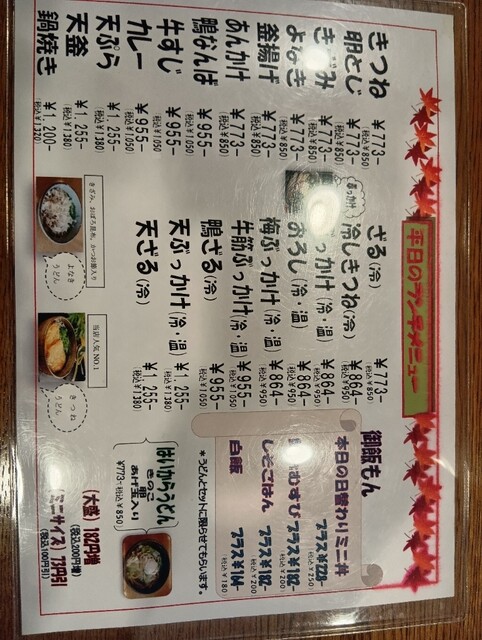 平日のランチメニュー
きつね ¥773-
(税込¥850)
卵とじ ¥773-
(税込¥850)
み ¥773-
(税込¥850)
よなき ¥773-
(税込¥850)
釜揚げ ¥773-
(税込¥850)
あんかけ ¥773-
(税込¥850)
鴨なんば ¥955-
(税込¥1050)
牛すじ ¥955-
(税込¥1050)
カレー ¥955-
(税込¥1050)
天ぷら ¥1.255-
(税込¥1380)
天釜 ¥1.255-
(税込¥1380)
鍋焼き ¥1.200-
(税込¥1320)
ざる(冷) ¥773-
(税込¥850)
冷しきつね(冷) ¥864-
(税込¥950)
っかけ(冷・温) ¥864-
(税込¥950)
おろし(冷・温) ¥864-
(税込¥950)
梅ぶっかけ(冷・温) ¥864-
(税込¥950)
牛筋ぶっかけ(冷・温) ¥955-
(税込¥1050)
鴨ざる(冷) ¥955-
(税込¥1050)
天ぶっかけ(冷・温) ¥1.255-
(税込¥1380)
天ざる(冷) ¥1.255-
(税込¥1380)
きざみ、おぼろ昆布、かつお節入り
よなきうどん
当店人気NO.1
きつねうどん
御飯もん
本日の日替わりミニ丼
プラス¥228-
(税込¥250)
むすび プラス¥182-
(税込¥200)
しそごはん プラス¥182-
(税込¥200)
白飯 プラス¥164-
(税込¥180)
*うどんとセットに限らせてもらいます。
はいからうどん
きのこ
卵
あげ玉入り
¥773-(税込¥850)
(大盛)182円増
(税込200円増)
(ミニサイズ)73円引
(税込100円引)